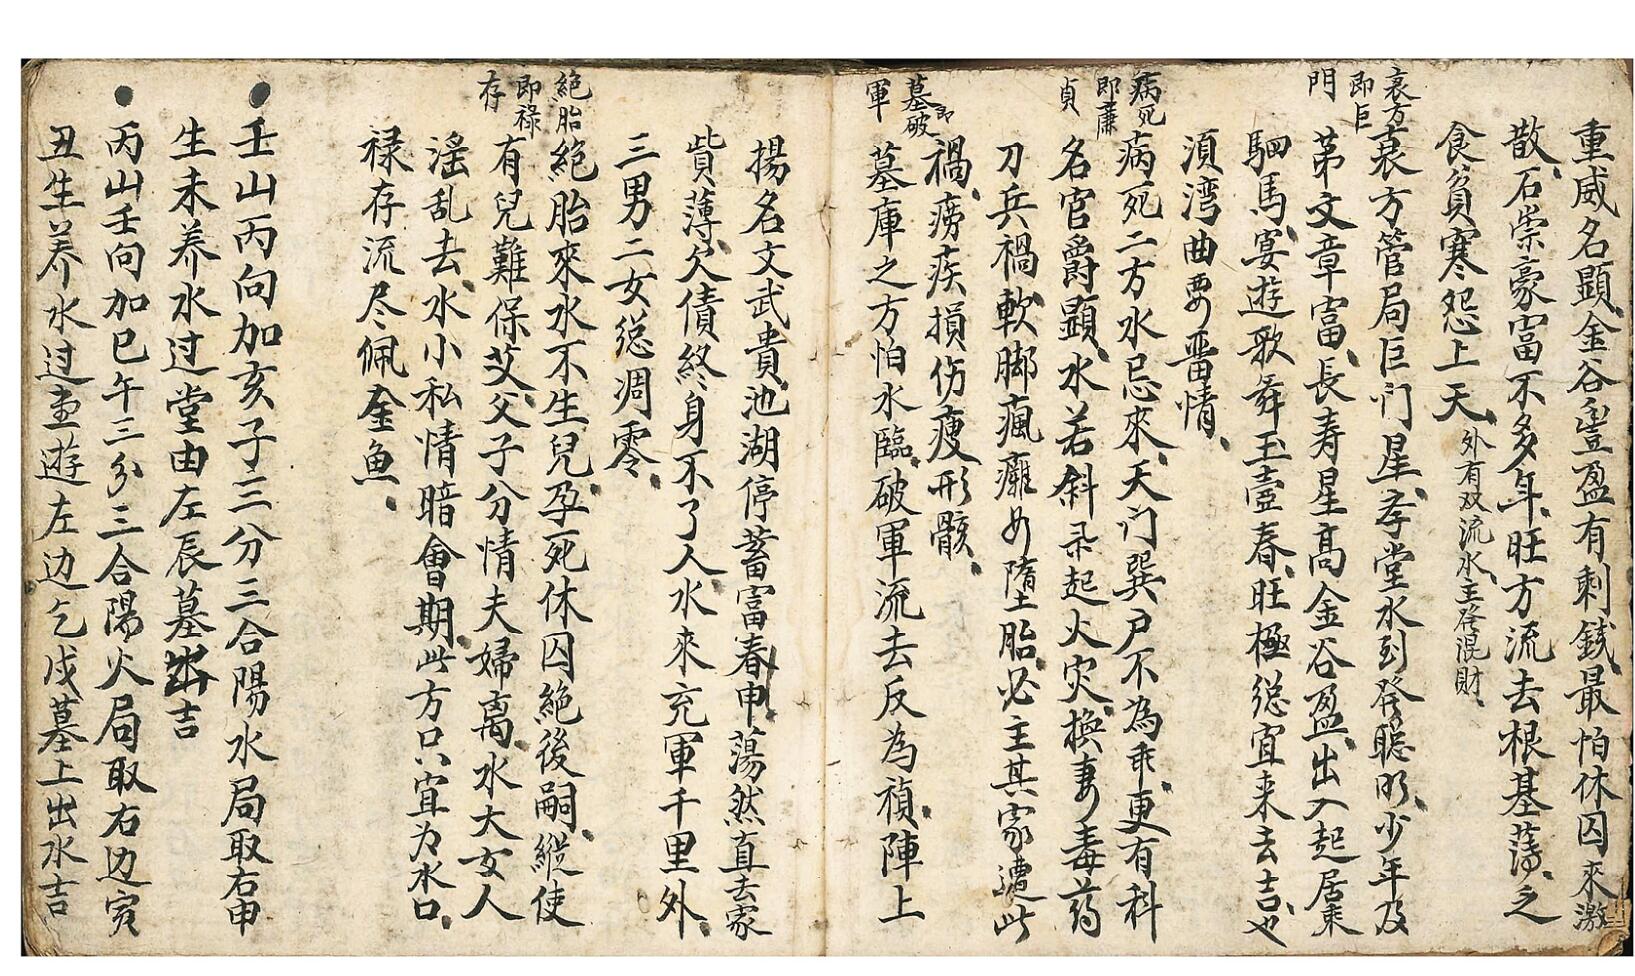 重威名顕、金谷豊盈有剩銭、最怕休囚來激
散、石崇豪富不多年、旺方流去根基蕩、之
食貧寒怨上天、外有双流水、主發混財、
衰方
即巨
門
衰方管局巨门星、孝堂水到發聡明、少年及
苐文章富、長寿星高金谷盈、出入起居乘
駟馬、宴遊歌舞玉壺春、旺極總宜来去吉、也
須湾曲要留情、
病死
即廉
貞
病死二方水忌來、天门巽户不為乖、更有科
名官爵顕、水若斜來起火灾、換妻毒药
刀兵禍、軟脚瘋癱女墮胎、必主其家遭此
禍、痨疾損伤瘦形骸、
墓即
破
軍
墓庫之方怕水臨、破軍流去反為禎、陣上
揚名文武貴、池湖停蓄富春申、蕩然直去家
貲薄、欠債終身不了人、水來充軍千里外、
三男二女總凋零、
絕胎
即禄
存
絕胎來水不生兒、孕死休囚絕後嗣、縱使
有兒難保艾、父子分情夫婦离、水大女人
滛乱去、水小私情暗會期、此方只宜為水口、
禄存流尽佩金魚、
壬山丙向加亥子三分三合陽水局取右申
生未养水过堂由左辰墓出吉
丙山壬向加巳午三分三合陽火局取右边寅
丑生养水过堂遊左边乞戌墓上出水吉